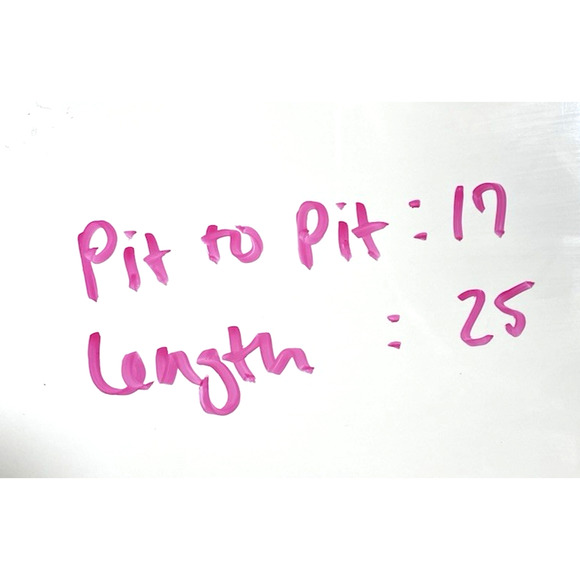 Pit to Pit : 17
Length : 25